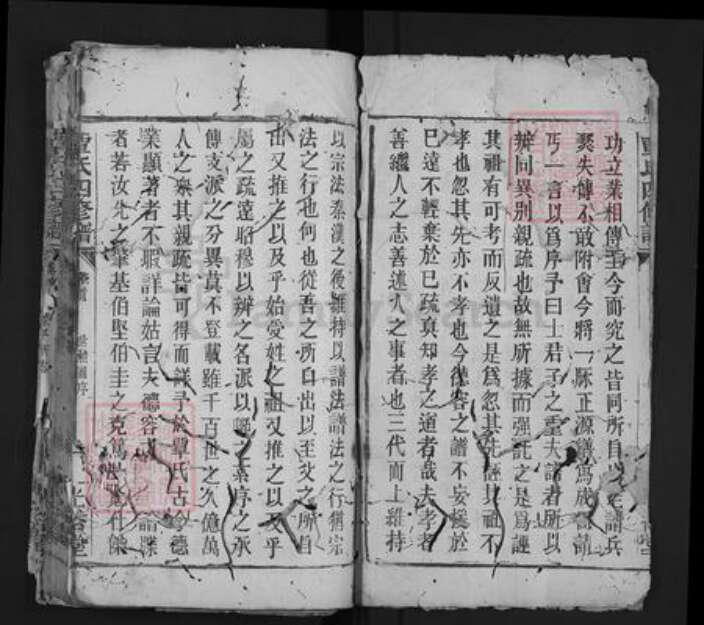 功立業相傳至今而究之皆同所自出譜兵
燹失傳不敢附會今將一脉正源繕為成譜請
丐一言以爲序予曰士君子之重夫譜者所以
辨同異別親疏也故無所據而彊託之是爲誣
其祖有可考而反遺之是爲忽其先誣其祖不
孝也忽其先亦不孝也今德容之譜不妄援於
已遠不輕棄於已疏真知孝之道者哉夫孝者
善繼人之志善述人之事者也三代而上維持
以宗法秦漢之後維持以譜法譜法之行猶宗
法之行也何也從吾之所自出以至父之所自
出又推之以及乎始受姓之祖又推之以及乎
屬之疏遠昭穆以辨之名派以嚼之系序之承
傳支派之分異莫不登載雖千百世之久億萬
人之衆其親疏皆可得而詳予於覃氏古今德
業顯著者不暇詳論姑言夫德容 譜牒
者若汝允之肇基伯堅伯圭之克篤 仕傑
覃氏四修譜
卷首